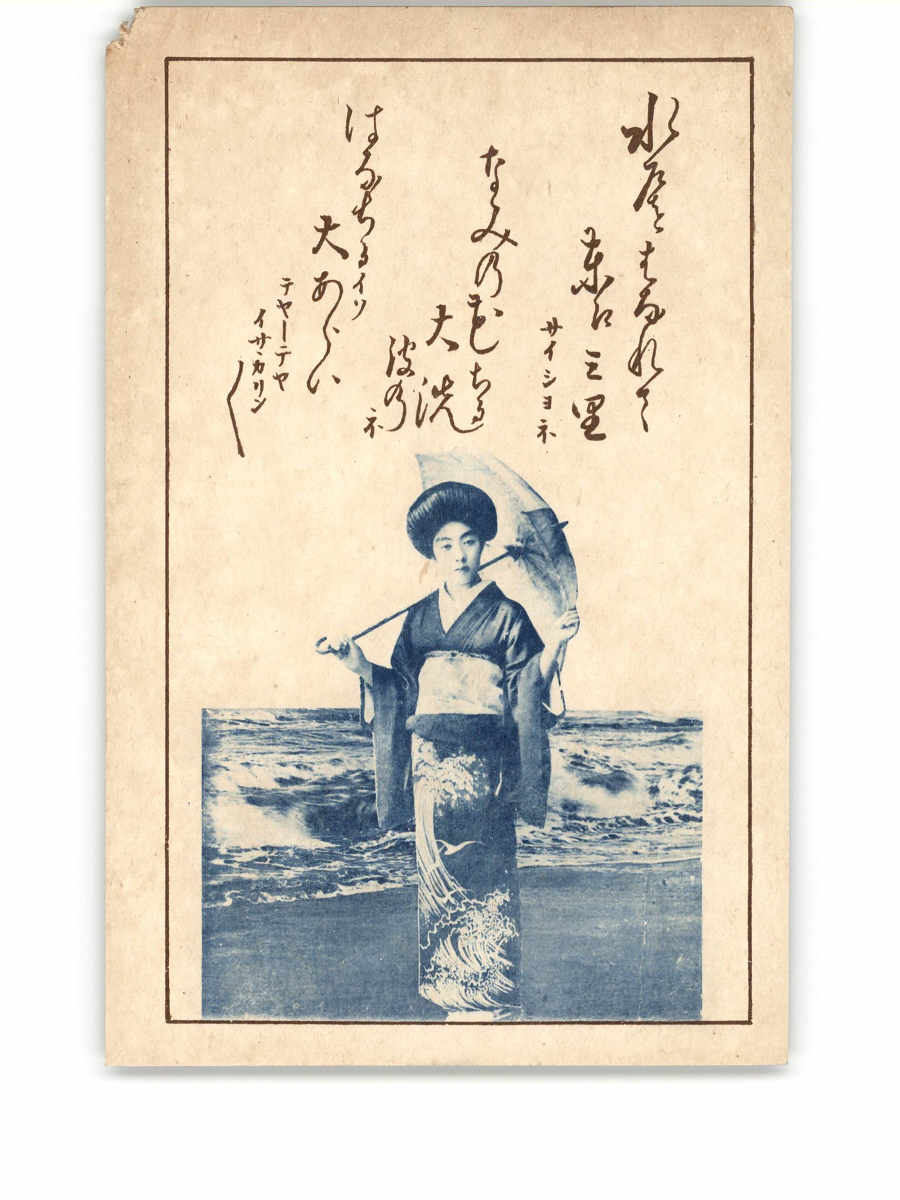 水戸をはなれて
東江三里
サイショネ
なみの花ちる
大洗
波の
ネ
はなちるイソ
大あらい
テヤーテヤ
イサヽカリン〱